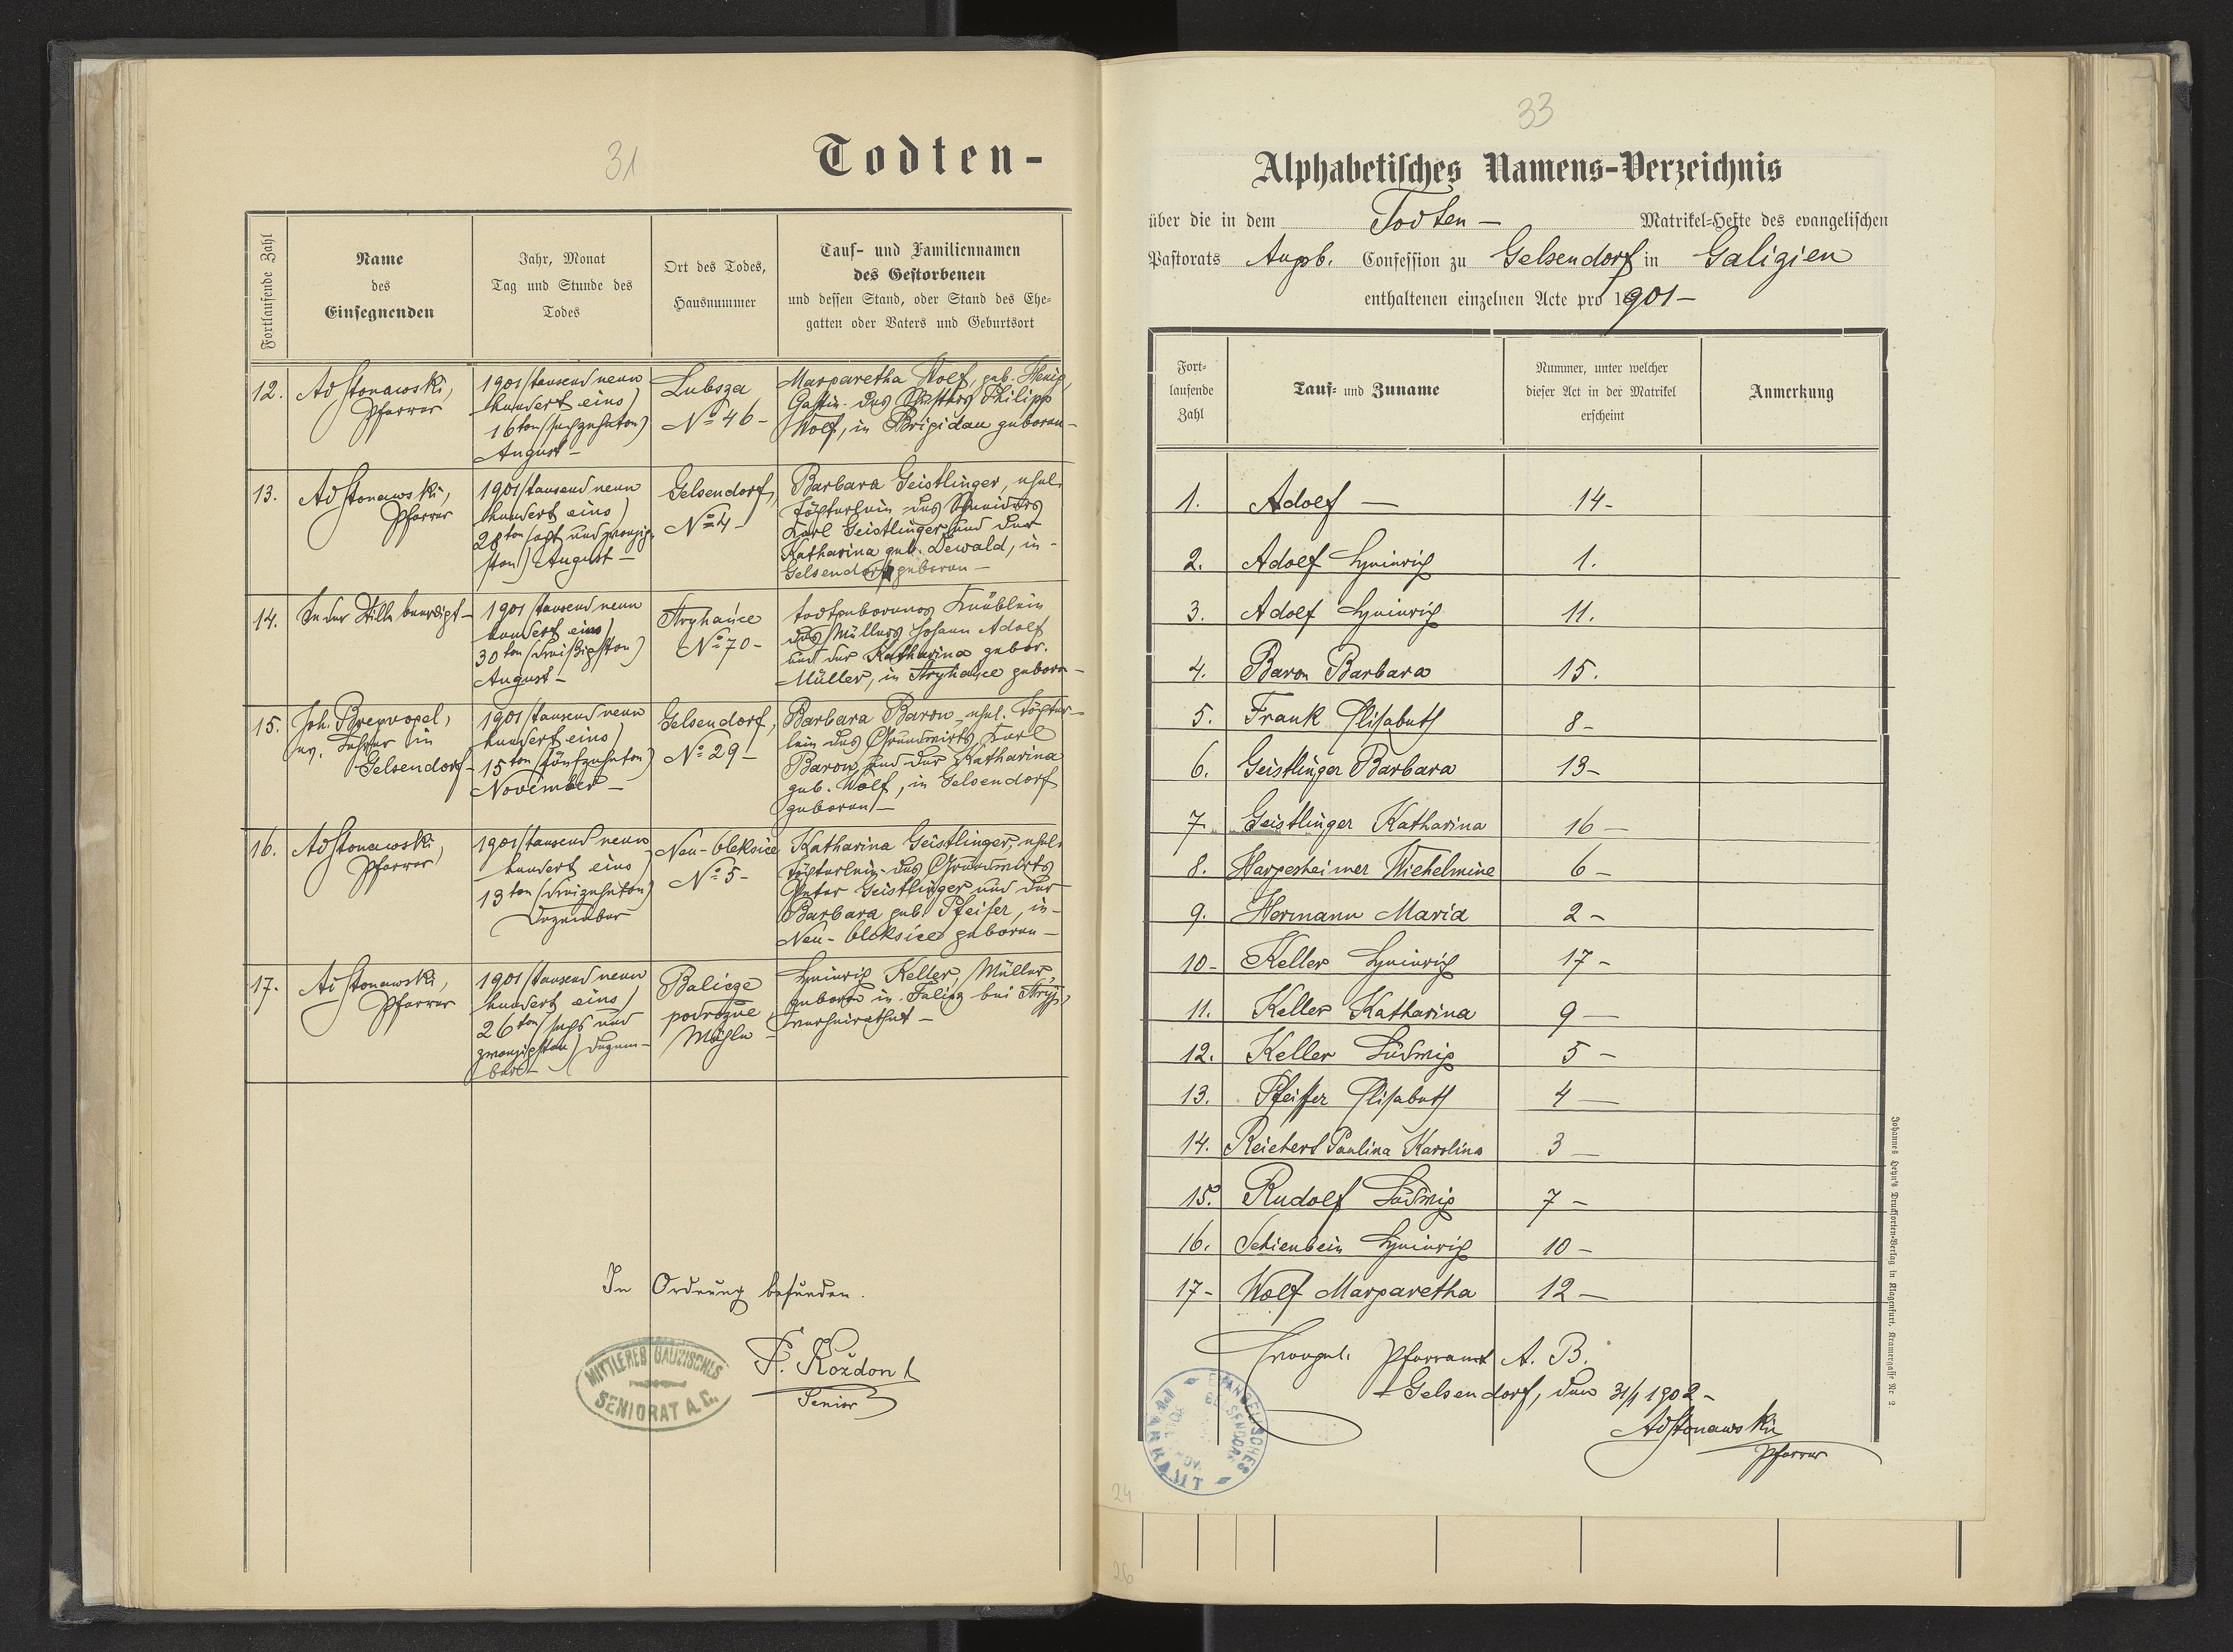 31
Todten-
Fortlaufende Zahl
Name
des
Einsegnenden
Jahr, Monat
Tag und Stunde des
Todes
Ort des Todes,
Hausnummer
Tauf- und Familiennamen
des Gestorbenen
und dessen Stand, oder Stand des Ehe-
gatten oder Vaters und Geburtsort
12.
Ad Stonawski,
Pfarrer
1901 (tausend neun
hundert eins)
16ten (sechzehnten)
August –
Lubsza
No 46 –
Margaretha Wolf, geb. Henig,
Gattin des Philipp
Wolf, in Brigidau geboren –
13.
Ad Stonawski,
Pfarrer
1901 (tausend neun
hundert eins)
28ten (acht und zwanzig-
sten) August –
Gelsendorf,
No 4 –
Barbara Geistlinger, ehel.
Töchterlein des Schneiders
Karl Geistlinger und der
Katharina geb. Dewald, in
Gelsendorf geboren –
14.
In der Stille beerdigt –
1901 (tausend neun
hundert eins)
30ten (dreißigsten)
August –
Stryhańce
No 70 –
todtgeborenes Knäblein
des Müllers Johann Adolf
und der Katharina gebor.
Müller, in Stryhańce geboren –
15.
Joh. Breyvogel,
ev. Lehrer in
Gelsendorf –
1901 (tausend neun
hundert eins)
15ten (fünfzehnten)
November –
Gelsendorf,
No 29 –
Barbara Baron, ehel. Töchter-
lein des Grundwirts Karl
Baron und der Katharina
geb. Wolf, in Gelsendorf
geboren –
16.
Ad Stonawski,
Pfarrer
1901 (tausend neun
hundert eins)
13ten (dreizehnten)
Dezember
Neu-Oleksice
No 5 –
Katharina Geistlinger, ehel.
Töchterlein des Grundwirts
Peter Geistlinger und der
Barbara geb. Pfeifer, in
Neu-Oleksice geboren –
17.
Ad Stonawski,
Pfarrer
1901 (tausend neun
hundert eins)
26ten (sechs und
zwanzigsten) Dezem-
ber –
Balicze
podróżne,
Mühle –
Heinrich Keller, Müller,
geboren in Falisz bei Stryj,
verheirathet –
In Ordnung befunden.
F. Kozdon
Senior
MITTLERES GALIZISCHES
SENIORAT A.C.
33
Alphabetisches Namens-Verzeichnis
über die in dem Todten – Matrikel-Hefte des evangelischen
Pastorats Augsb. Confession zu Gelsendorf in Galizien
enthaltenen einzelnen Acte pro 1901 –
Fort-
laufende
Zahl
Tauf- und Zuname
Nummer, unter welcher
dieser Act in der Matrikel
erscheint
Anmerkung
1. Adolf – 14 –
2. Adolf Heinrich 1.
3. Adolf Heinrich 11.
4. Baron Barbara 15.
5. Frank Elisabeth 8 –
6. Geistlinger Barbara 13 –
7. Geistlinger Katharina 16 –
8. Hargesheimer Wilhelmine 6 –
9. Hermann Maria 2 –
10 – Keller Heinrich 17 –
11. Keller Katharina 9 –
12. Keller Ludwig 5 –
13. Pfeiffer Elisabeth 4 –
14. Reichert Paulina Karolina 3 –
15. Rudolf Ludwig 7 –
16. Schienbein Heinrich 10 –
17 – Wolf Margaretha 12 –
Evangel. Pfarramt A. B.
Gelsendorf, den 31/1 1902 –
Ad Stonawski
Pfarrer
EVANGELISCHES
PFARRAMT
GELSENDORF
Johannes Heyn's Drucksorten-Verlag in Klagenfurt, Kramergasse Nr. 2
24
26